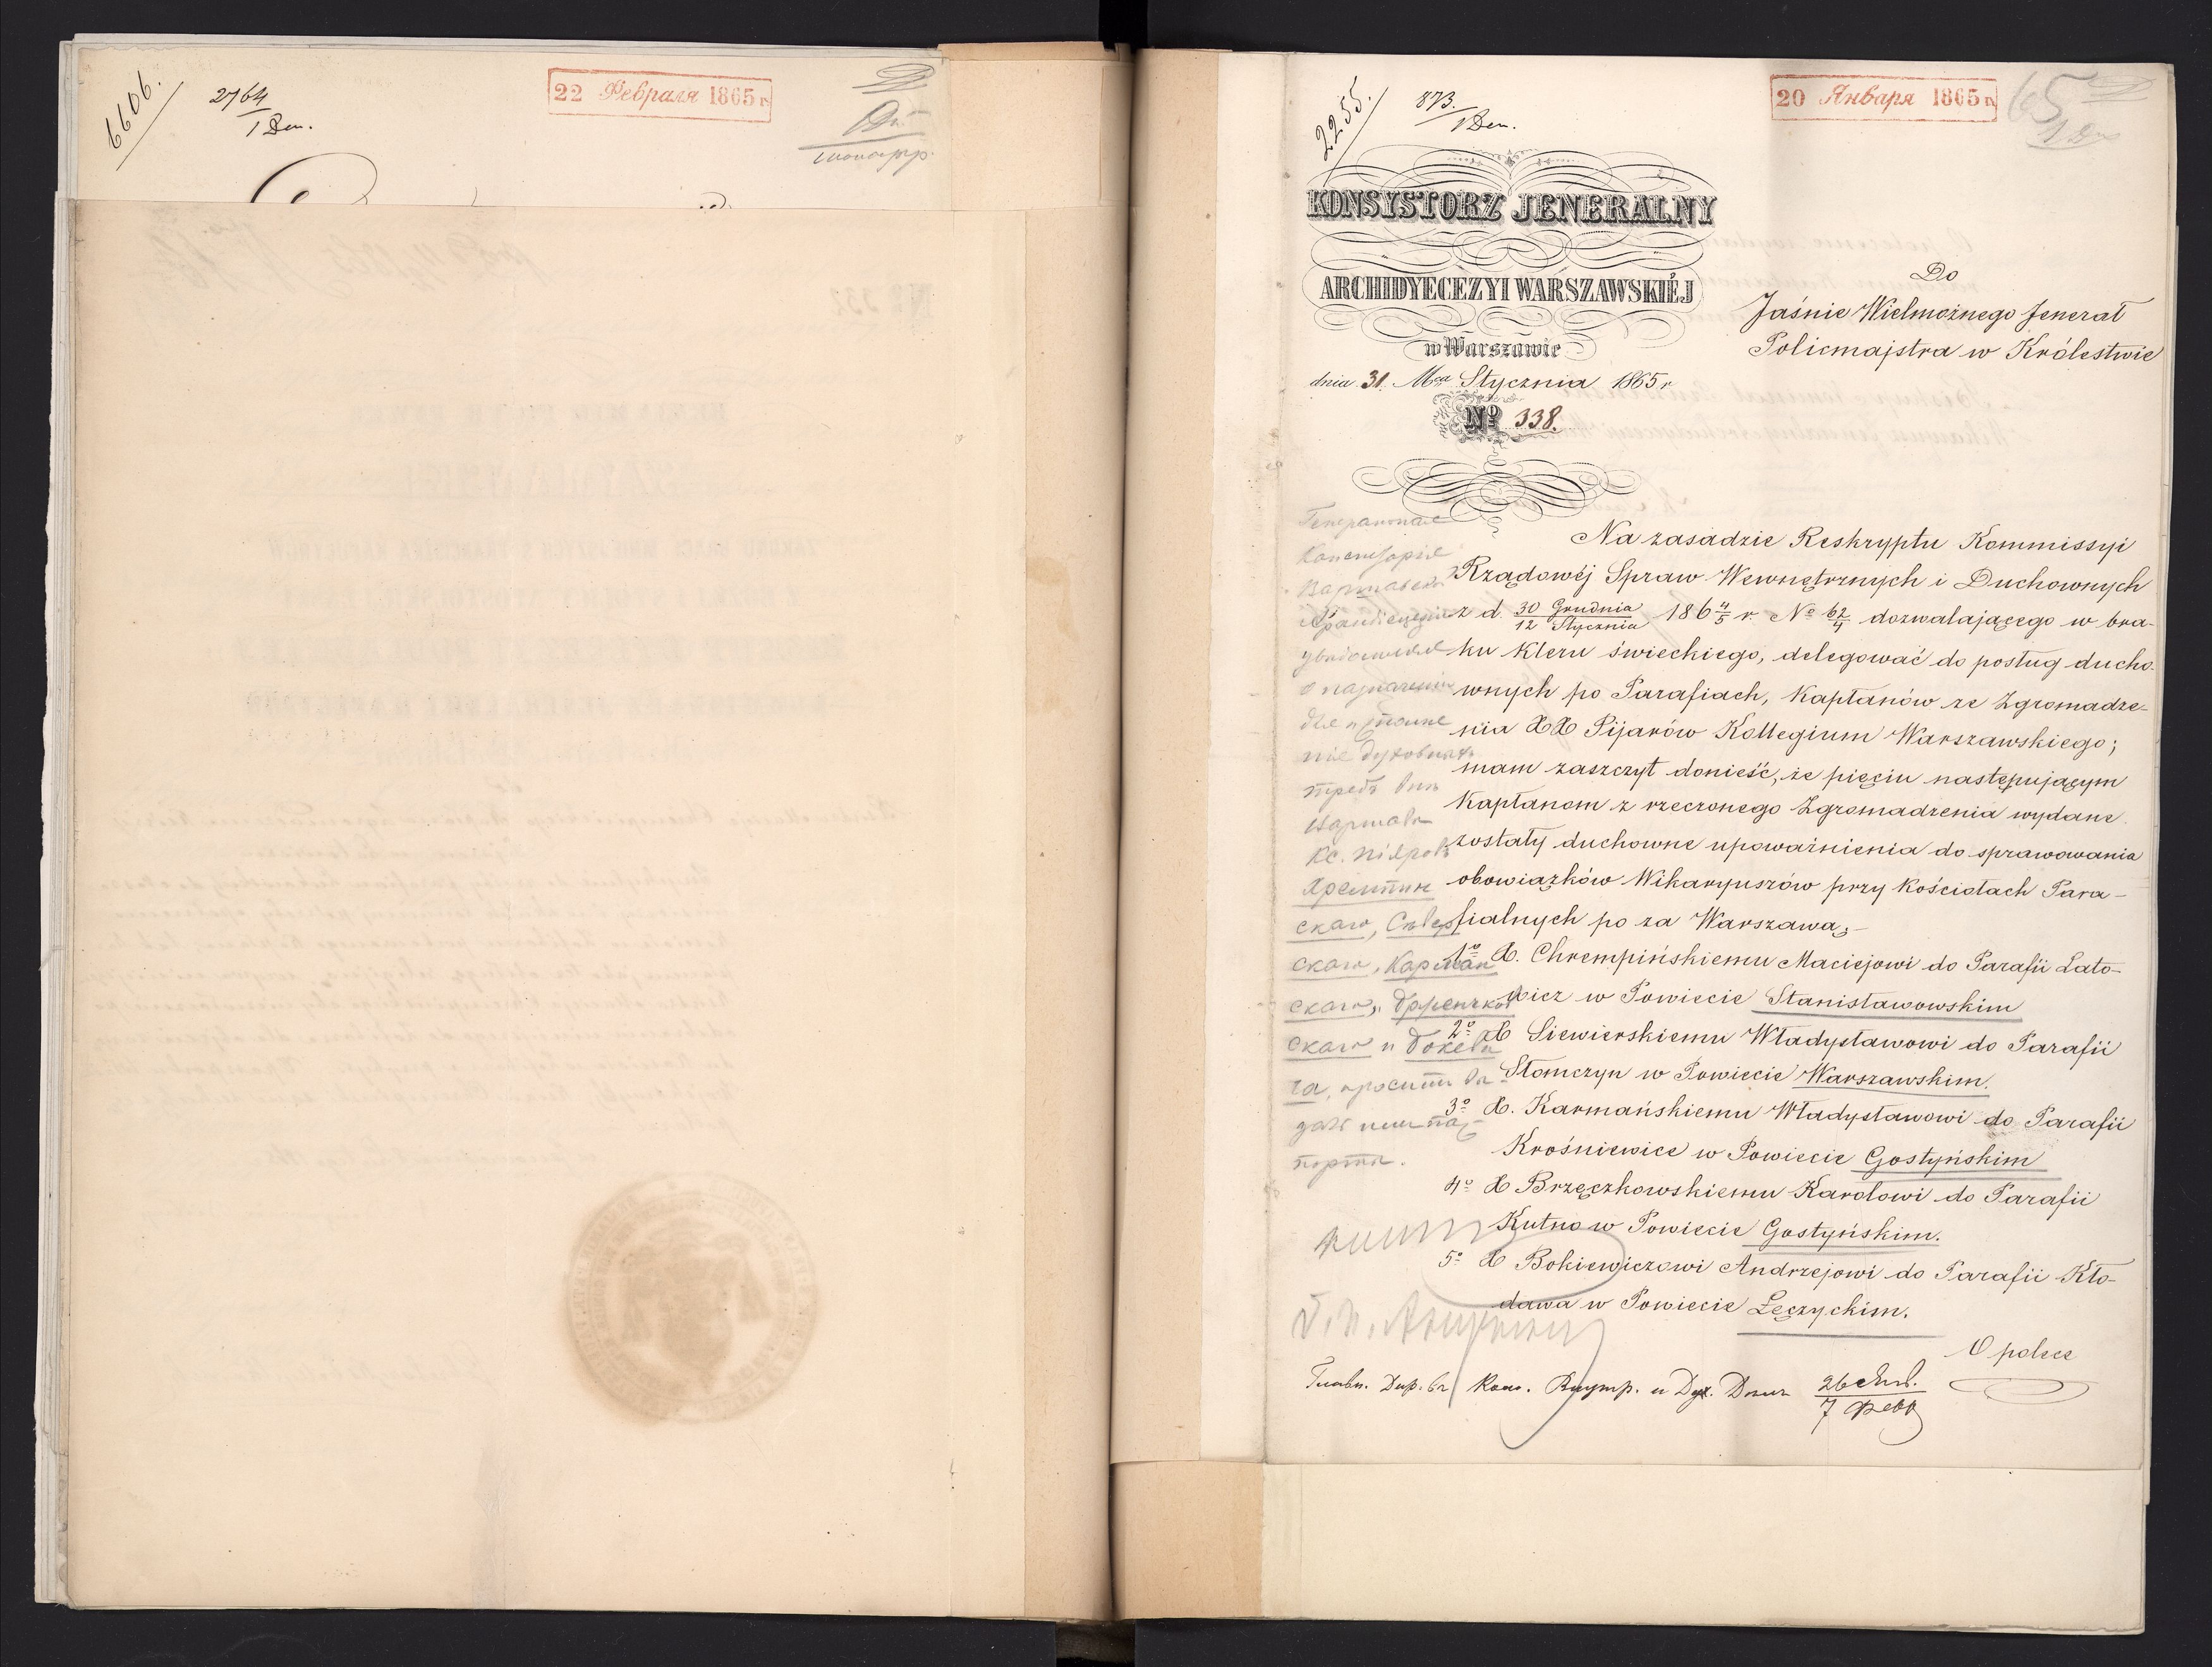 6606.
2764
1 Ден.
22 Февраля 1865 г.
2255.
873.
1 Ден.
20 Января 1865 г.
65
KONSYSTORZ JENERALNY
ARCHIDYECEZYI WARSZAWSKIÉJ
w Warszawie
dnia 31. Mca Stycznia 1865 r
No 338.
Do
Jaśnie Wielmożnego Jenerał
Policmajstra w Królestwie
Na zasadzie Reskryptu Kommissyi
Rządowéj Spraw Wewnętrznych i Duchownych
z d. 30 Grudnia / 12 Stycznia 186 4/5 r. No 62/4 dozwalającego w bra-
ku Kleru świeckiego, delegować do posług ducho-
wnych po Parafiach, Kapłanów ze Zgromadze-
nia XX Pijarów Kollegium Warszawskiego;
mam zaszczyt donieść, że pięciu następującym
Kapłanom z rzeczonego Zgromadzenia wydane
zostały duchowne upoważnienia do sprawowania
obowiązków Wikaryuszów przy Kościołach Para-
fialnych po za Warszawą;-
1o X. Chrempińskiemu Maciejowi do Parafii Lato-
wicz w Powiecie Stanisławowskim
2o X Siewierskiemu Władysławowi do Parafii
Słomczyn w Powiecie Warszawskim.
3o X. Karmańskiemu Władysławowi do Parafii
Krośniewice w Powiecie Gostyńskim
4o X Brzęczkowskiemu Karolowi do Parafii
Kutno w Powiecie Gostyńskim.
5o X Bokiewiczowi Andrzejowi do Parafii Kło-
dawa w Powiecie Łęczyckim.
O polece
Генеральная
Консисторія
Варшавск
Архидіецезіи
увѣдомляя
о назначеніи
для исполне
нія духовныхъ
требъ внѣ
Варшавы
Кс. Піяровъ
Хремпин
скаго, Сѣвер
скаго, Карман
скаго, Брженчков
скаго и Бокеви
ча, проситъ вы
дать имъ пас
порты.
Главн. Дир. Ком. Внутр. и Дух. Дѣлъ 26 Янв. / 7 Февр